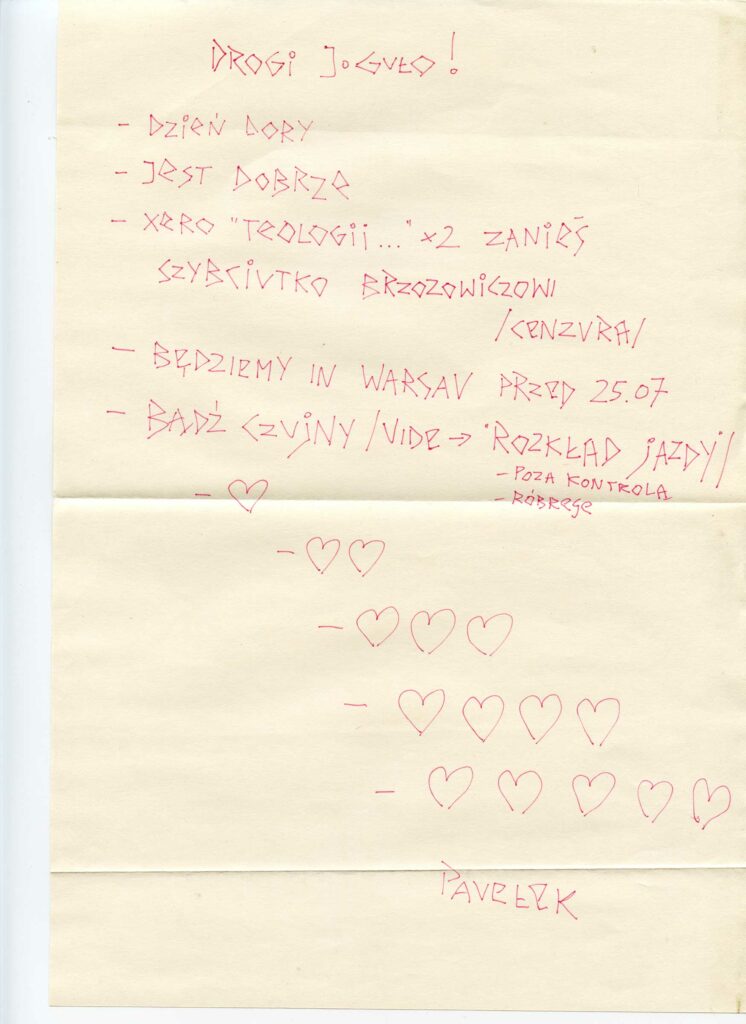 DROGI JoGUŁO!
- DZIEŃ DORY
- JEST DOBRZE
- XERO "TEOLOGII..." x2 ZANIEŚ
SZYBCIUTKO BRZOZOWICZOWI
/CENZURA/
- BĘDZIEMY IN WARSAV PRZED 25.07
- BĄDŹ CZUJNY /VIDE → 'ROZKŁAD JAZDY'/
- POZA KONTROLĄ
- RÓBREGE
- ♡
- ♡♡
- ♡♡♡
- ♡♡♡♡
- ♡♡♡♡♡
PAVEŁEK